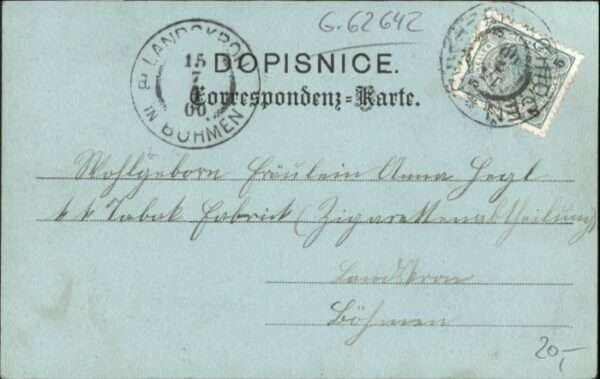 G. 62642
LANDSKRON
15
7
00
IN BÖHMEN
DOPISNICE.
Correspondenz=Karte.
Wohlgeborn Fräulein Anna Hegl
k k Tabak Fabrick (Zigarettenabtheilung)
Landskron
Böhmen
20,-